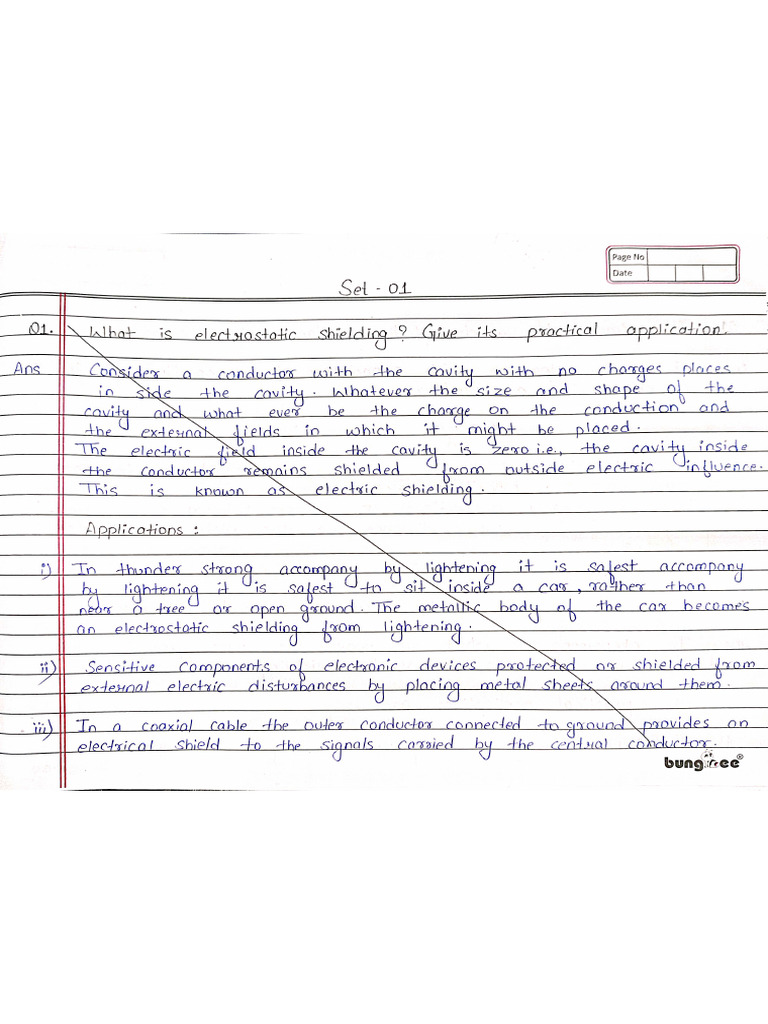 Page No
Date
Set - 01
Q1. What is electrostatic shielding? Give its practical application.
Ans Consider a conductor with the cavity with no charges places
in side the cavity. Whatever the size and shape of the
cavity and what ever be the charge on the conduction and
the external fields in which it might be placed.
The electric field inside the cavity is zero i.e., the cavity inside
the conductor remains shielded from outside electric influence.
This is known as electric shielding.
Applications :
i) In thunder strong accompany by lightening it is safest accompany
by lightening it is safest to sit inside a car, rather than
near a tree or open ground. The metallic body of the car becomes
an electrostatic shielding from lightening.
ii) Sensitive components of electronic devices protected or shielded from
external electric disturbances by placing metal sheets around them.
iii) In a coaxial cable the outer conductor connected to ground provides an
electrical shield to the signals carried by the central conductor.